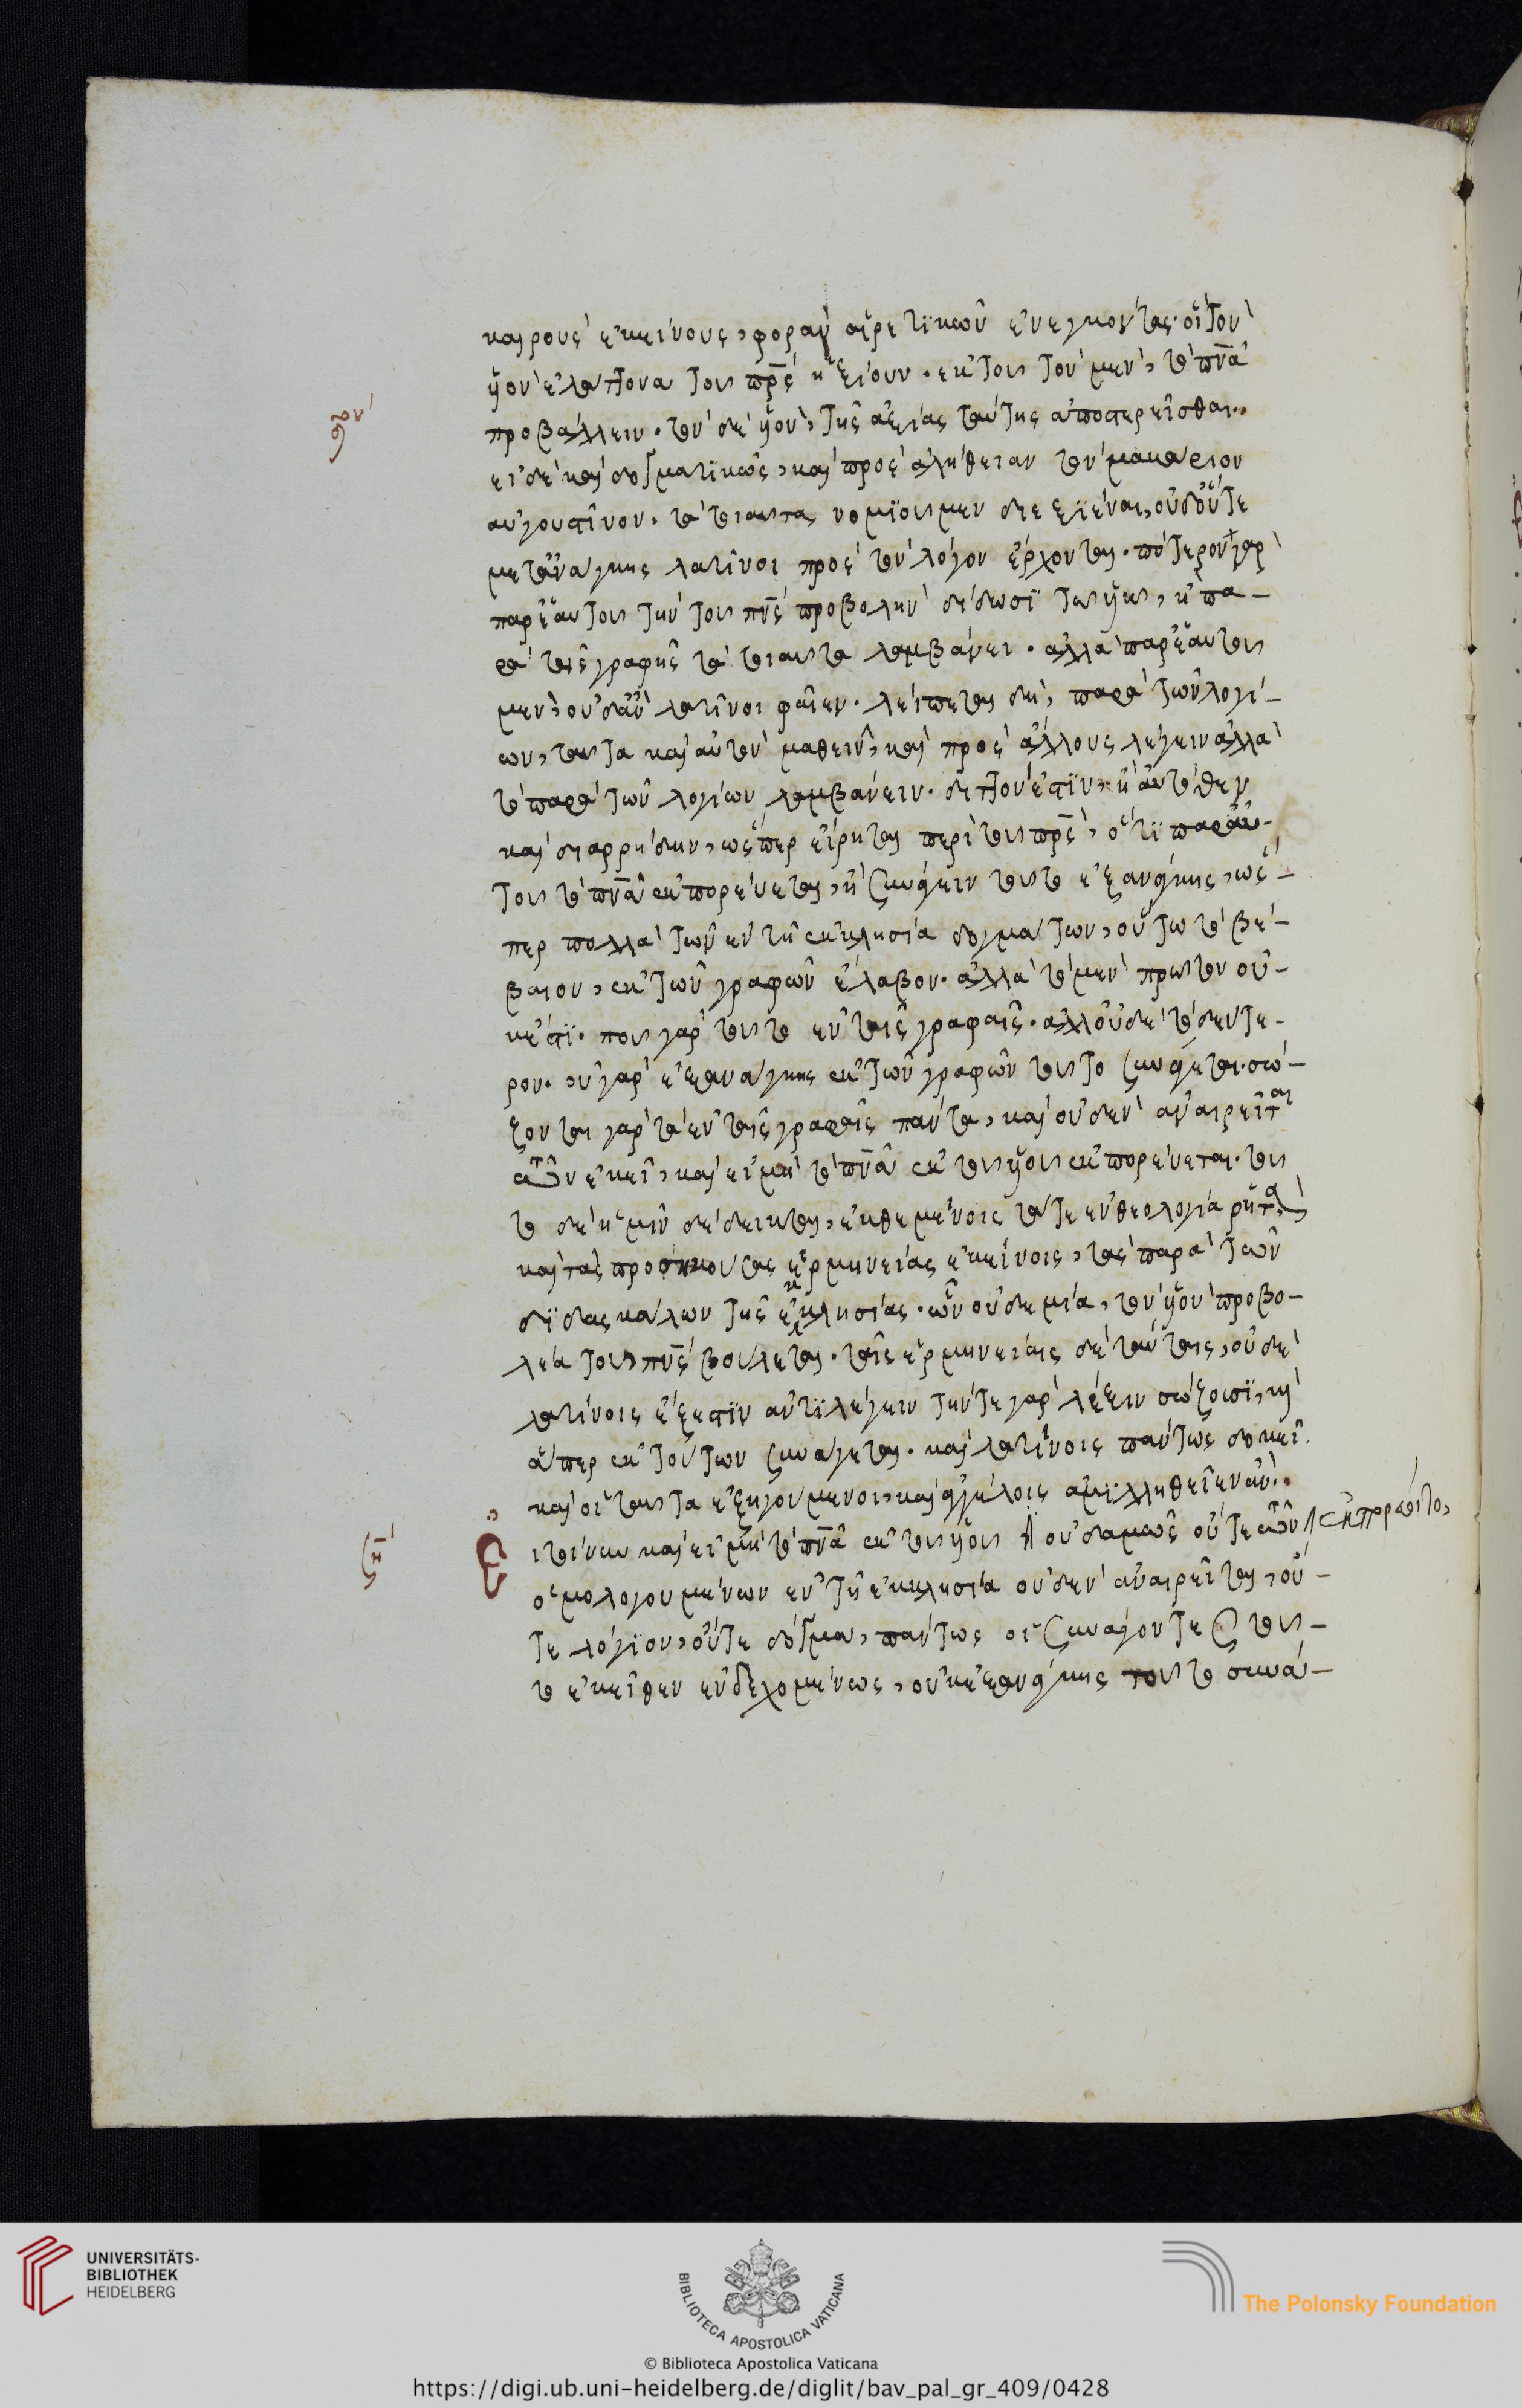 καιροὺς ἐκείνους, φορὰν αἱρετϊκῶν ἐνεγκόντας. οἳ τὸν
ϋἱὸν ἐλάττονα τοῦ πρς ἠξίουν. ἐκ τοῦ τὸν μὲν, τὸ πνα
προβάλλειν. τὸν δὲ ϋἱὸν, τῆς ἀξίας ταύτης ἀποστερεῖσθαι..
εἰ δὲ καὶ δογματϊκῶς, καὶ πρὸς ἀλήθειαν τὸν μακάριον
αὐγουστῖνον. τὰ τοιαῦτα νομίσωμεν διεξϊέναι, οὐδ' οὕτε
μετ' ἀνάγκης λατῖνοι πρὸς τὸν λόγον ἔρχονται. πότερον γὰρ
παρ' ἑαυτοῦ τὴν τοῦ πνς προβολὴν δίδωσϊ τῶ ϋἱῶ, ἢ πα-
ρὰ τῆς γραφῆς τὰ τοιαῦτα λαμβάνει. ἀλλὰ παρ' ἑαυτοῦ
μὲν, οὐδ' ἂν λατῖνοι φαῖεν. λείπεται δὴ, παρὰ τῶν λογί-
ων, ταῦτα καὶ αὐτὸν μαθεῖν, καὶ πρὸς ἄλλους λέγειν ἀλλὰ
τὸ παρὰ τῶν λογίων λαμβάνειν. διττόν ἐστϊν, ἢ αὐτόθεν
καὶ διαρρήδην, ὥσπερ εἴρηται περὶ τοῦ πρς, ὅτϊ παρ' αὐ-
τοῦ τὸ πνα ἐκπορεύεται, ἢ συνάγειν τοῦτο ἐξ ἀνάγκης, ὥσ-
περ πολλὰ τῶν ἐν τῇ ἐκκλησία δογμάτων, οὕτω τὸ βέ-
βαιον, ἐκ τῶν γραφῶν ἔλαβον. ἀλλὰ τὸ μὲν πρῶτον οὐ-
κ ἔστϊ. ποῦ γὰρ τοῦτο ἐν ταῖς γραφαῖς. ἀλλ' οὐδὲ τὸ δεύτε-
ρον. οὐ γὰρ ἐξ ἀνάγκης ἐκ τῶν γραφῶν τοῦτο συνάγεται. σώ-
ζονται γὰρ τὰ ἐν ταῖς γραφαῖς πάντα, καὶ οὐδὲν ἀναιρεῖται
τῶν ἐκεῖ, καὶ εἰ μὴ τὸ πνα ἐκ τοῦ ϋἱοῦ ἐκπορεύεται. τοῦ
το δὲ ἡμῖν δέδεικται, ἐκθεμένοις τά τε ἐν θεολογία ρητὰ,
καὶ τὰς προσηκούσας ἑρμηνείας ἐκείνοις, τὰς παρὰ τῶν
δϊδασκάλων τῆς ἐκκλησίας. ὧν οὐδεμία, τὸν ϋἱὸν προβο-
λέα τοῦ πνς βούλεται. ταῖς ἑρμηνείαις δὲ ταύταις, οὐδὲ
λατίνοις ἔξεστϊν ἀντϊλέγειν τήν τε γὰρ λέξιν σώζουσϊ, καὶ
ἅπερ ἐκ τούτων συνάγεται. καὶ λατίνοις πάντως δοκεῖ.
καὶ οἱ ταῦτα ἐξηγούμενοι, καὶ ἀγγέλοις ἁμιλληθεῖεν ἄν..
Εἰ τοίνυν καὶ εἰ μὴ τὸ πνα ἐκ τοῦ ϋἱοῦ οὐδαμῶς οὔτε τῶν ἐκπορεύοιτο,
ὁμολογουμένων ἐν τῇ ἐκκλησία οὐδὲν ἀναιρεῖται, οὔ-
τε λόγϊον, οὔτε δόγμα, πάντως οἱ συνάγοντες τοῦ-
το ἐκεῖθεν ἐνδεχομένως, οὐκ ἐξ ἀνάγκης τοῦτο συνά-
UNIVERSITÄTS-
BIBLIOTHEK
HEIDELBERG
BIBLIOTECA APOSTOLICA VATICANA
The Polonsky Foundation
© Biblioteca Apostolica Vaticana
https://digi.ub.uni-heidelberg.de/diglit/bav_pal_gr_409/0428